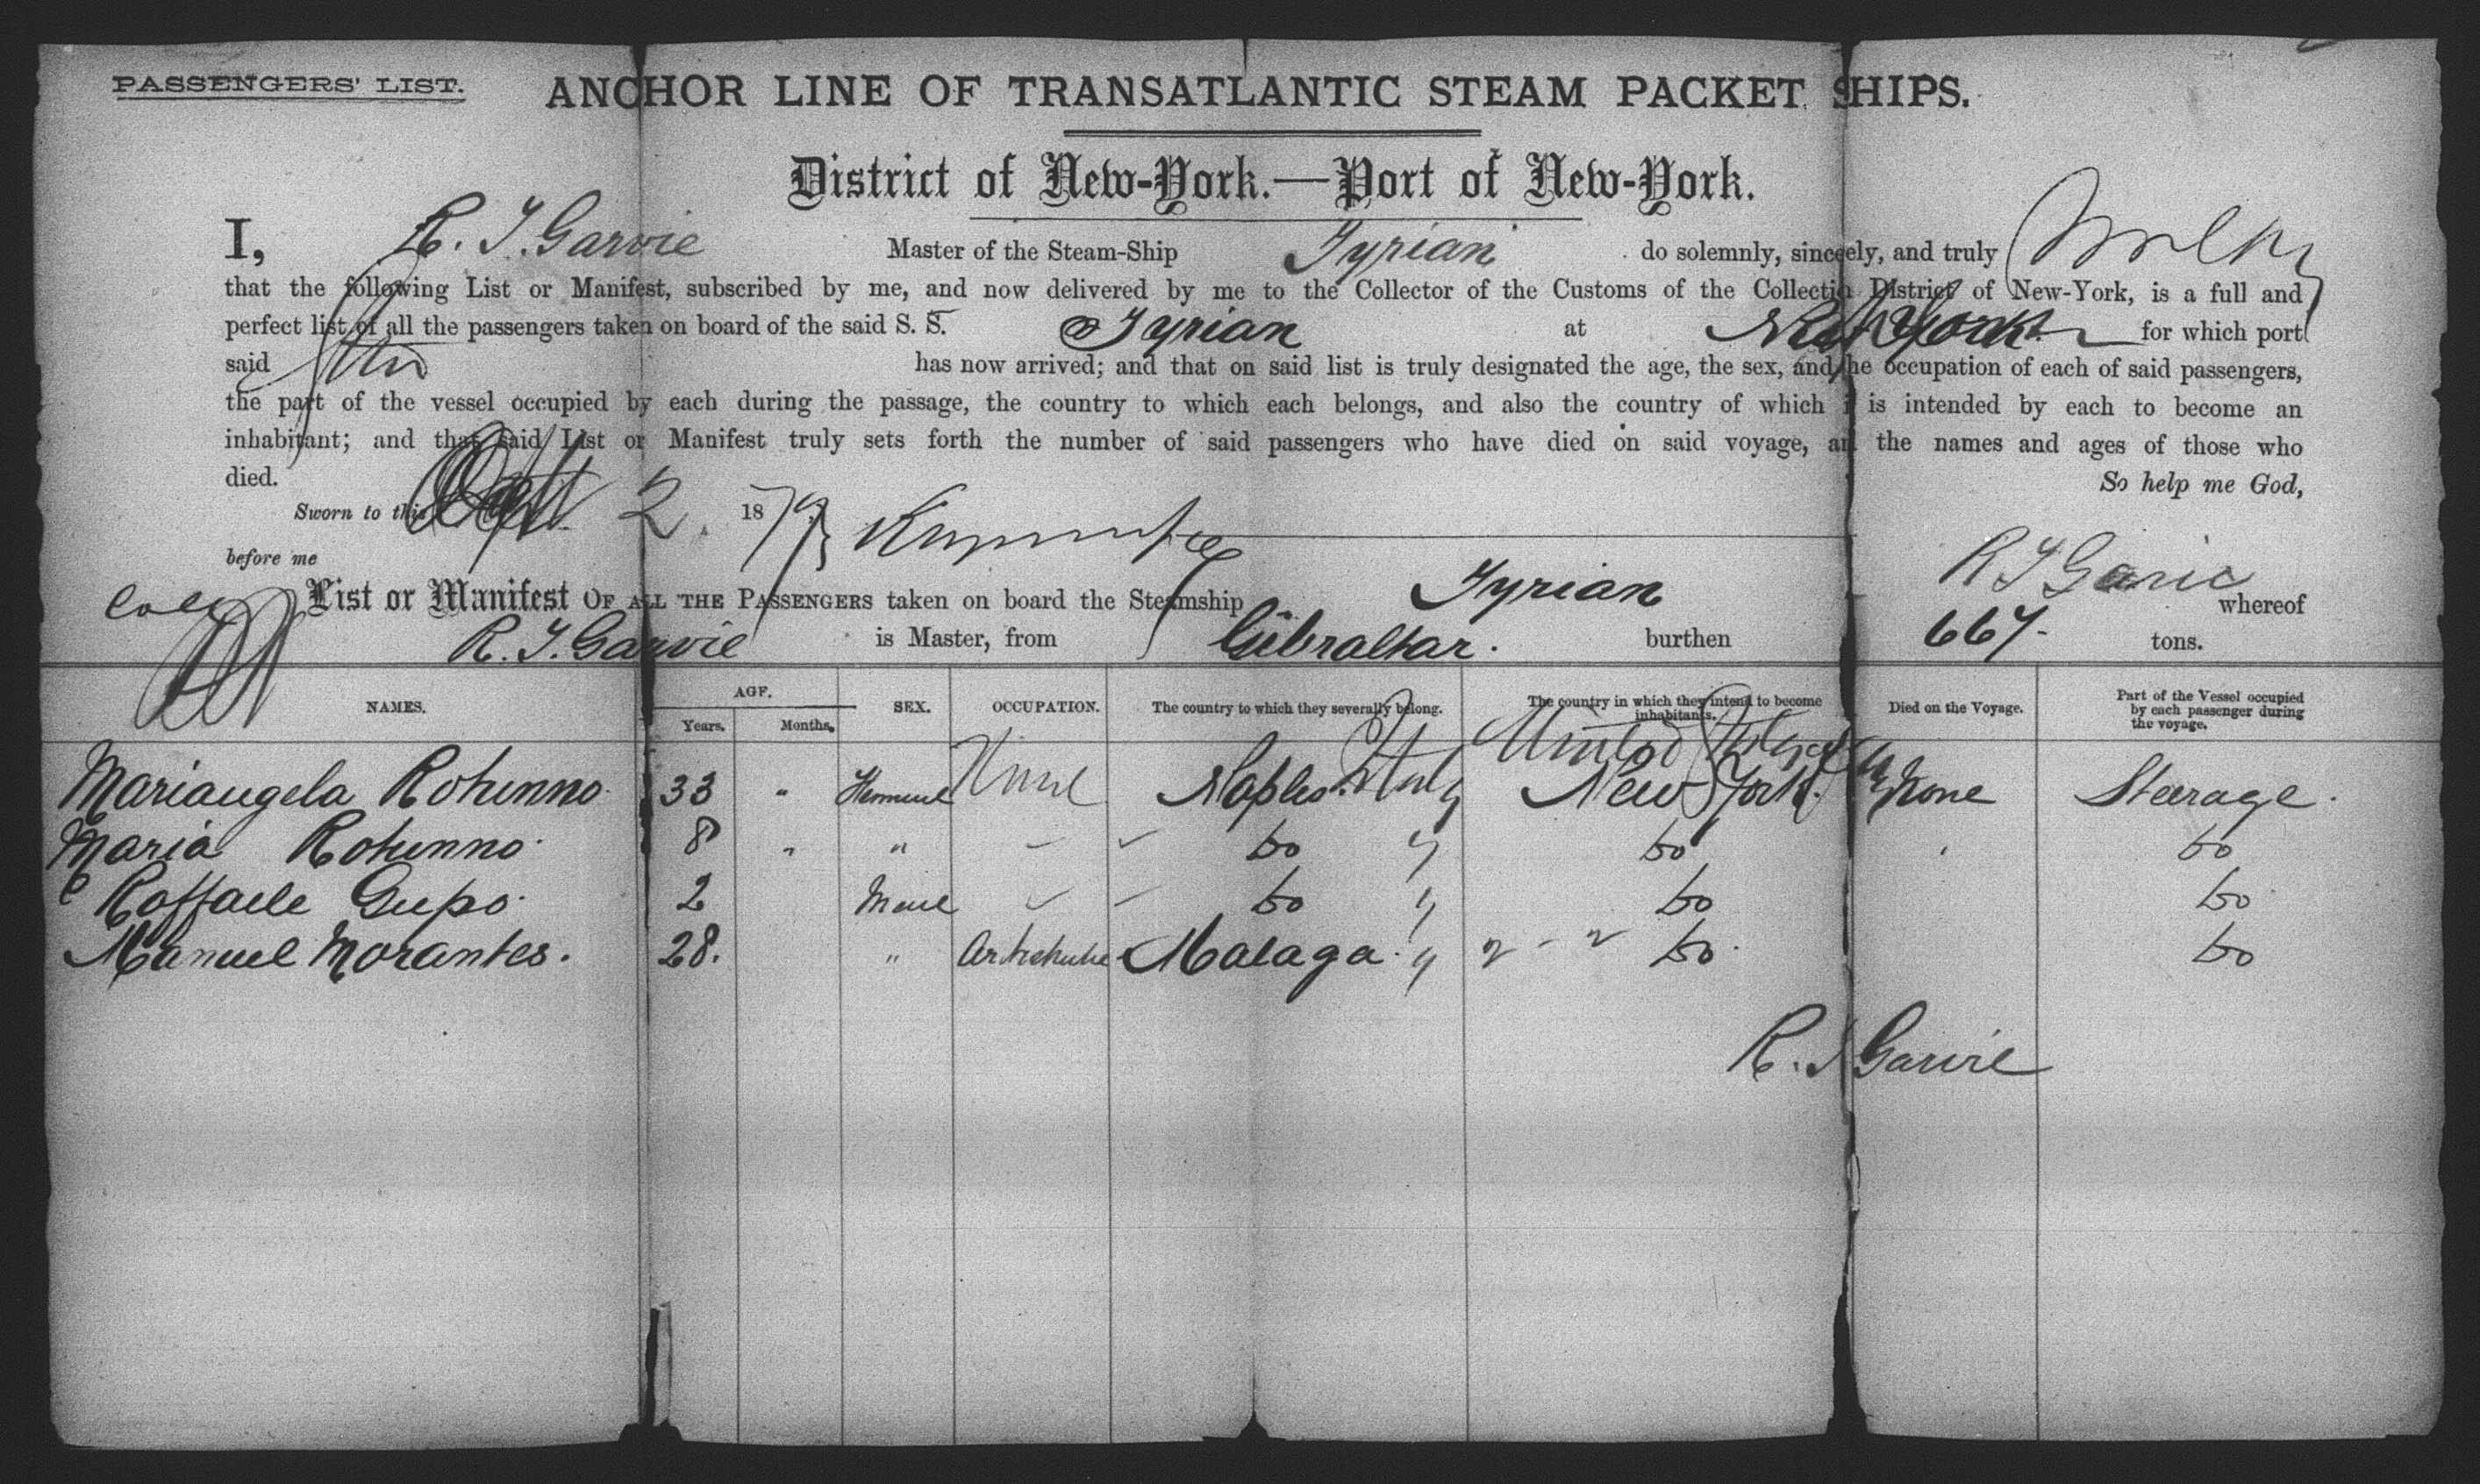 PASSENGERS' LIST.
ANCHOR LINE OF TRANSATLANTIC STEAM PACKET SHIPS.
District of New-York.—Port of New-York.
I, R. J. Garvie Master of the Steam-Ship Tyrian do solemnly, sincerely, and truly
that the following List or Manifest, subscribed by me, and now delivered by me to the Collector of the Customs of the Collection District of New-York, is a full and
perfect list of all the passengers taken on board of the said S. S. Tyrian at New York for which port
said has now arrived; and that on said list is truly designated the age, the sex, and the occupation of each of said passengers,
the part of the vessel occupied by each during the passage, the country to which each belongs, and also the country of which it is intended by each to become an
inhabitant; and that said List or Manifest truly sets forth the number of said passengers who have died on said voyage, and the names and ages of those who
died.
So help me God,
Sworn to this 2 1879
before me
R J Garvie
List or Manifest OF ALL THE PASSENGERS taken on board the Steamship Tyrian whereof
R. J. Garvie is Master, from Gibraltar. burthen 667 tons.
NAMES. AGE. Years. Months. SEX. OCCUPATION. The country to which they severally belong. The country in which they intend to become inhabitants. Died on the Voyage. Part of the Vessel occupied by each passenger during the voyage.
Mariangela Rotunno 33 " None Naples Italy United States New York. None Steerage.
Maria Rotunno 8 " " Do " Do Do
Raffaele Gupo 2 Male Do " Do Do
Manuel Morantes. 28. " Malaga " Do Do
R. J Garvie